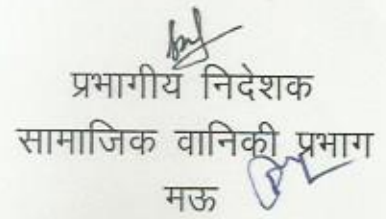 प्रभागीय निदेशक
सामाजिक वानिकी प्रभाग
मऊ